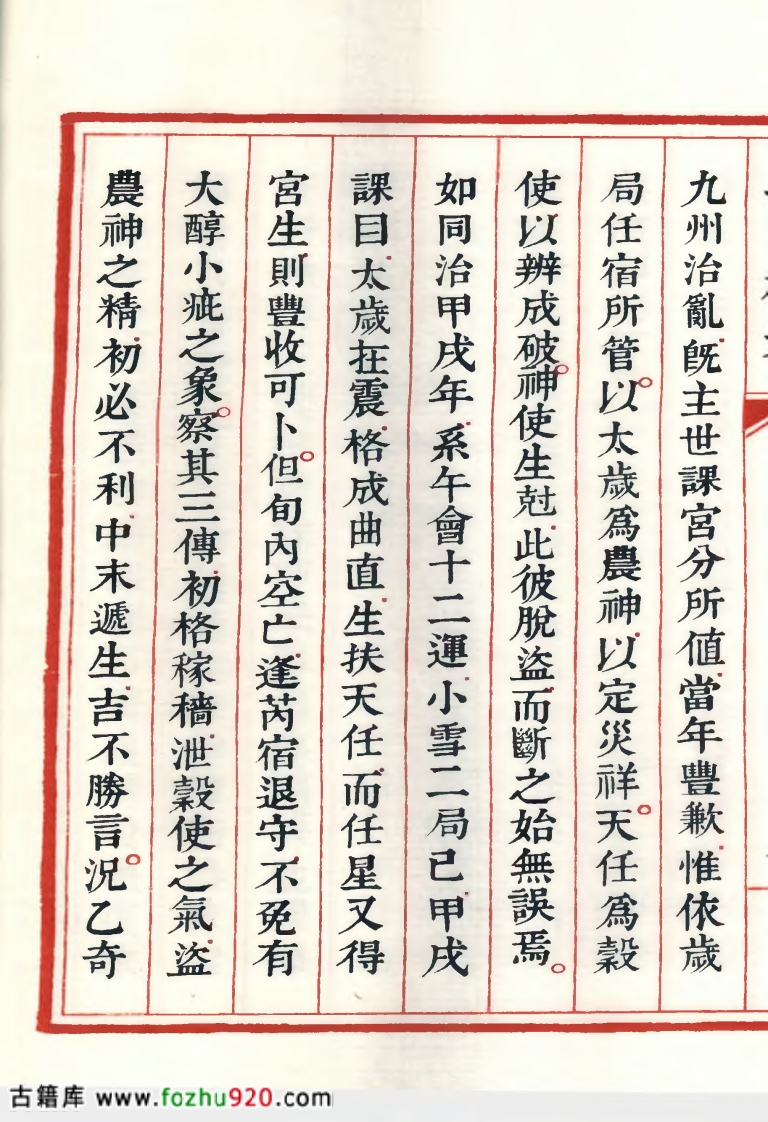 九州治亂既主世課宮分所值當年豐歉惟依歲
局任宿所管以太歲爲農神以定災祥天任爲穀
使以辨成破神使生尅此彼脫盜而斷之始無誤焉
如同治甲戌年系午會十二運小雪二局己甲戌
課目太歲在震格成曲直生扶天任而任星又得
宮生則豐收可卜但旬內空亡逢芮宿退守不免有
大醇小疵之象察其三傳初格稼穡泄穀使之氣盜
農神之精初必不利中末遞生吉不勝言況乙奇
古籍库 www.fozhu920.com